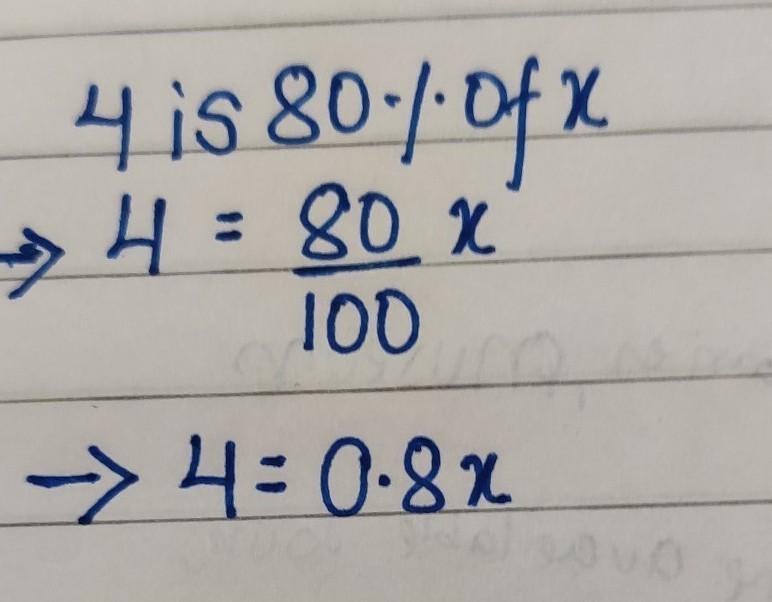 4 is 80% of x
→ 4 = 80/100 x
→ 4 = 0.8x